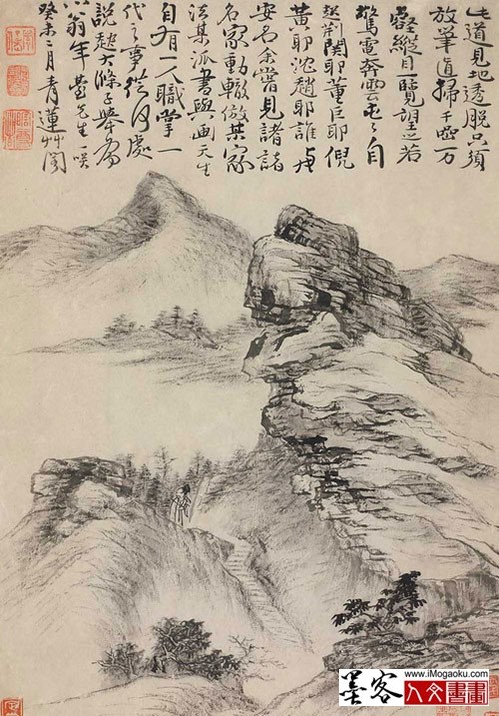 此道見地透脫只須
放筆直掃千巖萬
壑縱目一覽望之若
驚電奔雲屯屯自
起荊關耶董巨耶倪
黃耶沈趙耶誰與
安名余嘗見諸諸
名家動輒倣某家
法某派書與畫天生
自有一人職掌一
代之事從何處
說起大滌子舉為
翁年臺先生一咲
癸未二月青蓮艸閣
墨客
www.iMogaoku.com
人文書畫